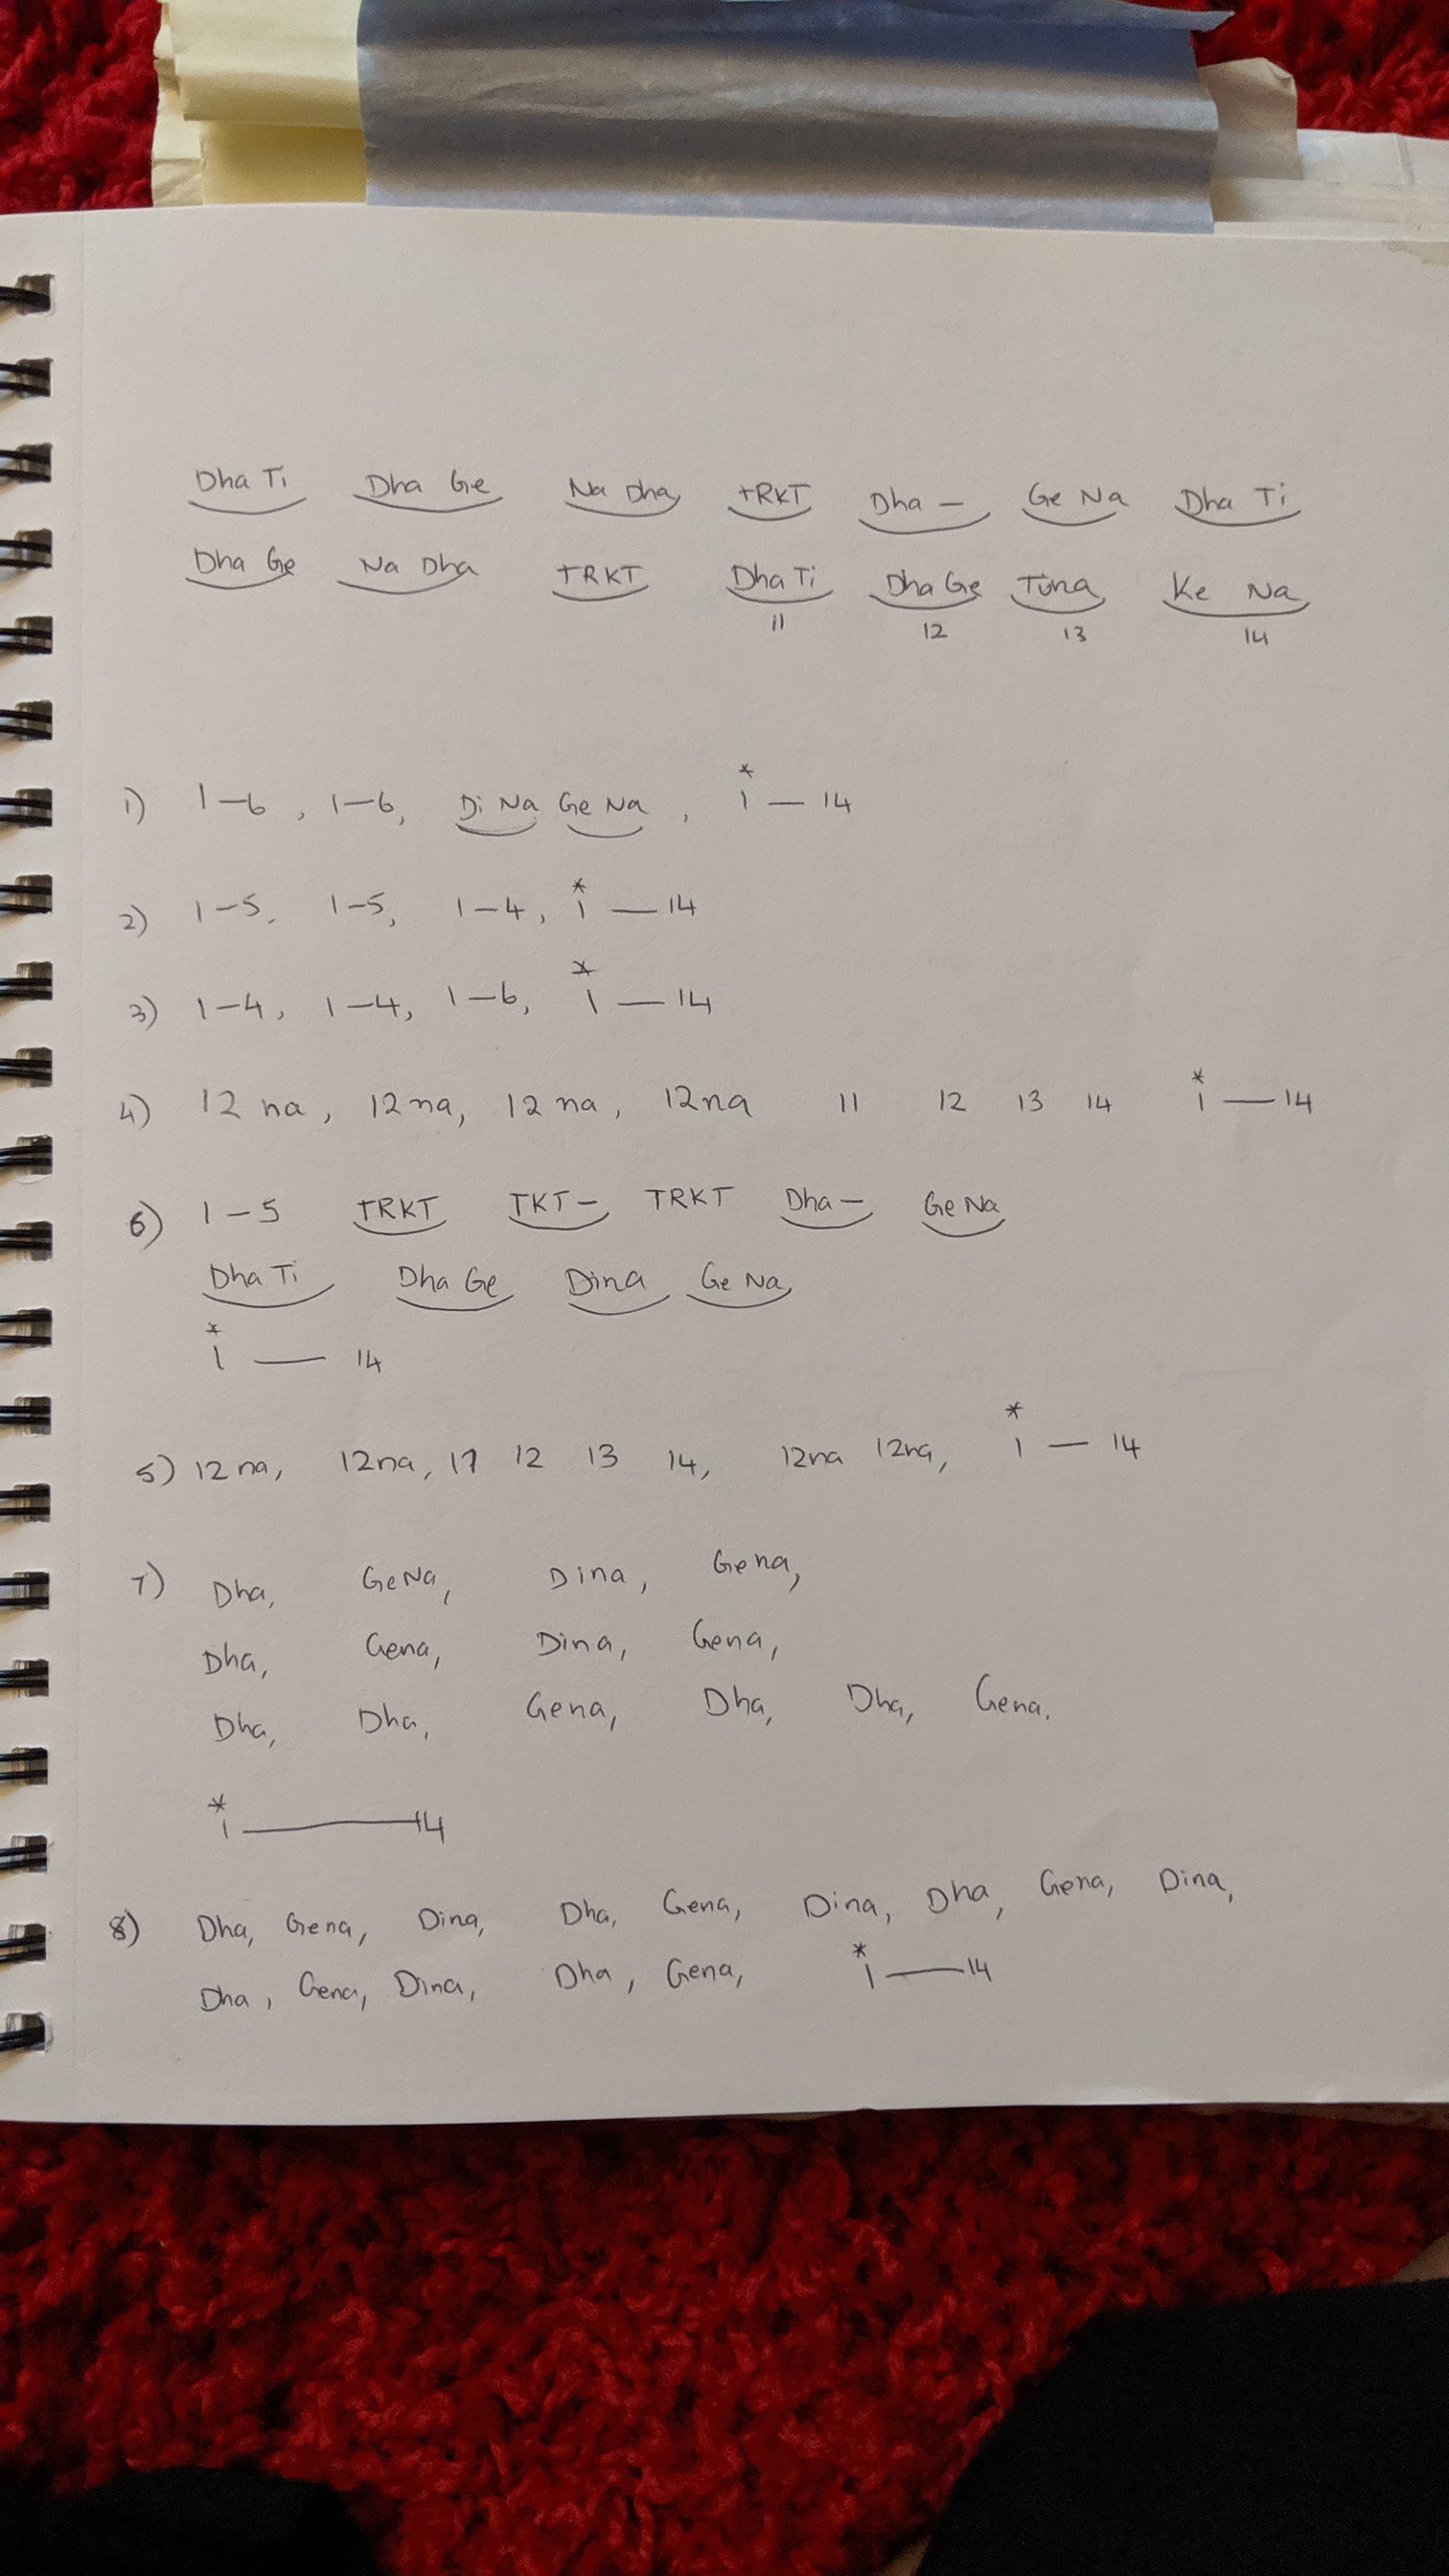 Dha Ti Dha Ge Na Dha TRKT Dha — Ge Na Dha Ti
Dha Ge Na Dha TRKT Dha Ti Dha Ge Tuna Ke Na
11 12 13 14
1) 1—6, 1—6, Di Na Ge Na, 1 — 14
*
2) 1—5, 1—5, 1—4, 1 — 14
*
3) 1—4, 1—4, 1—6, 1 — 14
*
4) 12 na, 12 na, 12 na, 12na 11 12 13 14 1 — 14
*
6) 1—5 TRKT TKT— TRKT Dha— Ge Na
Dha Ti Dha Ge Dina Ge Na
*
1 — 14
*
5) 12 na, 12na, 11 12 13 14, 12na 12na, 1 — 14
7) Dha, GeNa, Dina, Gena,
Dha, Gena, Dina, Gena,
Dha, Dha, Gena, Dha, Dha, Gena.
*
1 — 14
8) Dha, Gena, Dina, Dha, Gena, Dina, Dha, Gena, Dina,
*
Dha, Gena, Dina, Dha, Gena, 1 — 14